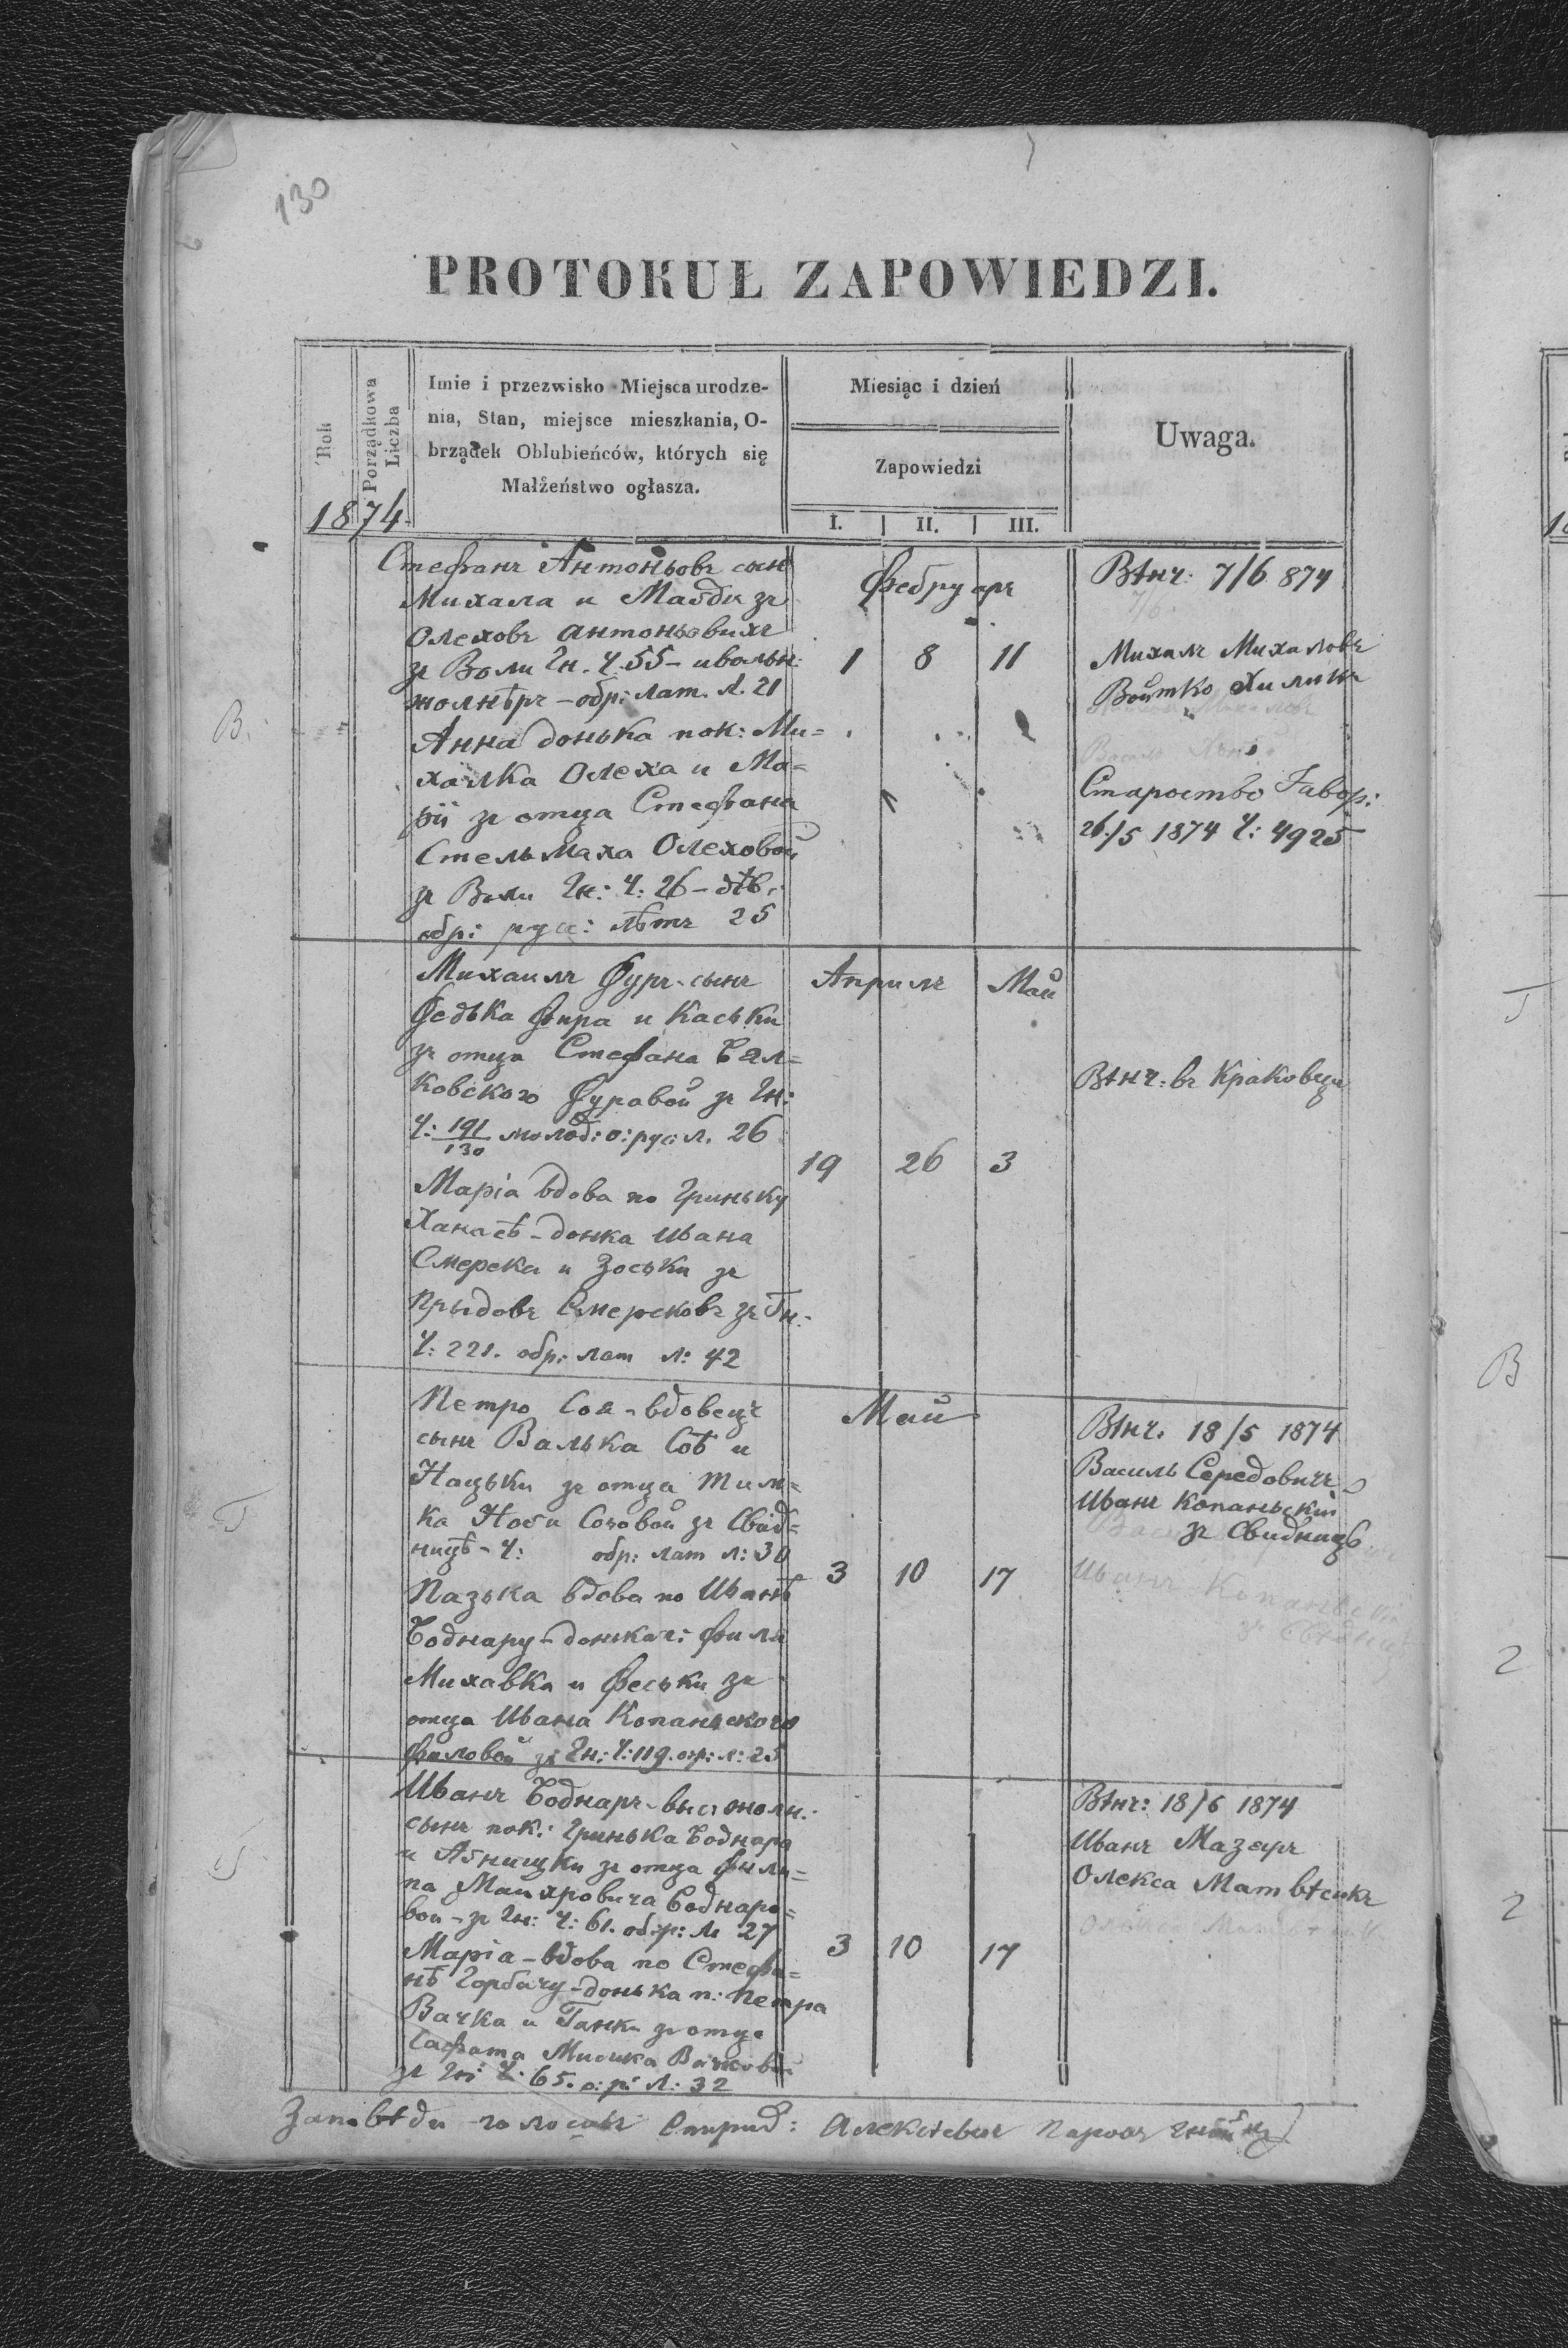 130
PROTOKUŁ ZAPOWIEDZI.
Rok
Porządkowa Liczba
Imie i przezwisko Miejsca urodze-
nia, Stan, miejsce mieszkania, O-
brządek Oblubieńców, których się
Małżeństwo ogłasza.
Miesiąc i dzień
Zapowiedzi
I. II. III.
Uwaga.
1874
Стефанъ Антоньовъ сын
Михала и Магди зъ
Олеховъ Антоньовихъ
зъ Воли Гн. Ч. 55 - увольн:
жолнѣръ - обр: лат. л. 21
Анна донька пок: Ми=
халка Олеха и Ма=
рїи зъ отца Стефана
Стельмаха Олеховой
зъ Воли Гн: Ч: 26 - дѣв:
обр: рус: лѣтъ 25
Фебруаръ
1 8 11
Вѣнч: 7/6 874
7/6
Михалъ Михаловъ
Войтко Хиликъ
Староство Явор:
26/5 1874 Ч: 4925
В:
Михаилъ Фуръ - сынъ
Федька Фира и Каськи
зъ отца Стефана Бял=
ковского Фуравой зъ Гн:
Ч: 191/130 молод: о: рус: л. 26
Марія вдова по Гриньку
Ханасѣ - донка Ивана
Смерека и Зоськи зъ
Прыдовъ Смерековъ зъ Гн:
Ч: 221. обр: лат л: 42
Априль Май
19 26 3
Вѣнч: въ Краковци
Петро Соя - вдовецъ
сынъ Валька Соѣ и
Нацьки зъ отца Тим=
ка Ноги Соьовой зъ Свид=
ницѣ - Ч: обр: лат л: 30
Пазька вдова по Иванѣ
Боднару - донька п: Филя
Михавка и Феськи зъ
отца Ивана Копаньского
Филовой зъ Гн: Ч: 119. о:р: л: 25
Май
3 10 17
Вѣнч. 18/5 1874
Василь Середовичъ
Иванъ Копаньскій
зъ Свидницѣ
Иванъ Копаньскій
зъ Свѣдниц
Т
Иванъ Боднаръ - выс. жолн.
сынъ пок: Гринька Боднара
и Агнишки зъ отца Фили=
па Боднаро=
вой - зъ Гн: Ч: 61. об:р: л. 27
Марія - вдова по Стефа=
нѣ Горбачу - донька п: Петра
Вачка и Ганки зъ отца
Сафата Мисика Вачковой
зъ Гн: Ч: 65. о: р: л: 32
3 10 17
Вѣнч: 18/6 1874
Иванъ Мазаръ
Олекса Матвѣсикъ
Заповѣди голосивъ Спирид: Алексѣевич Парохъ
Т
В
2
2